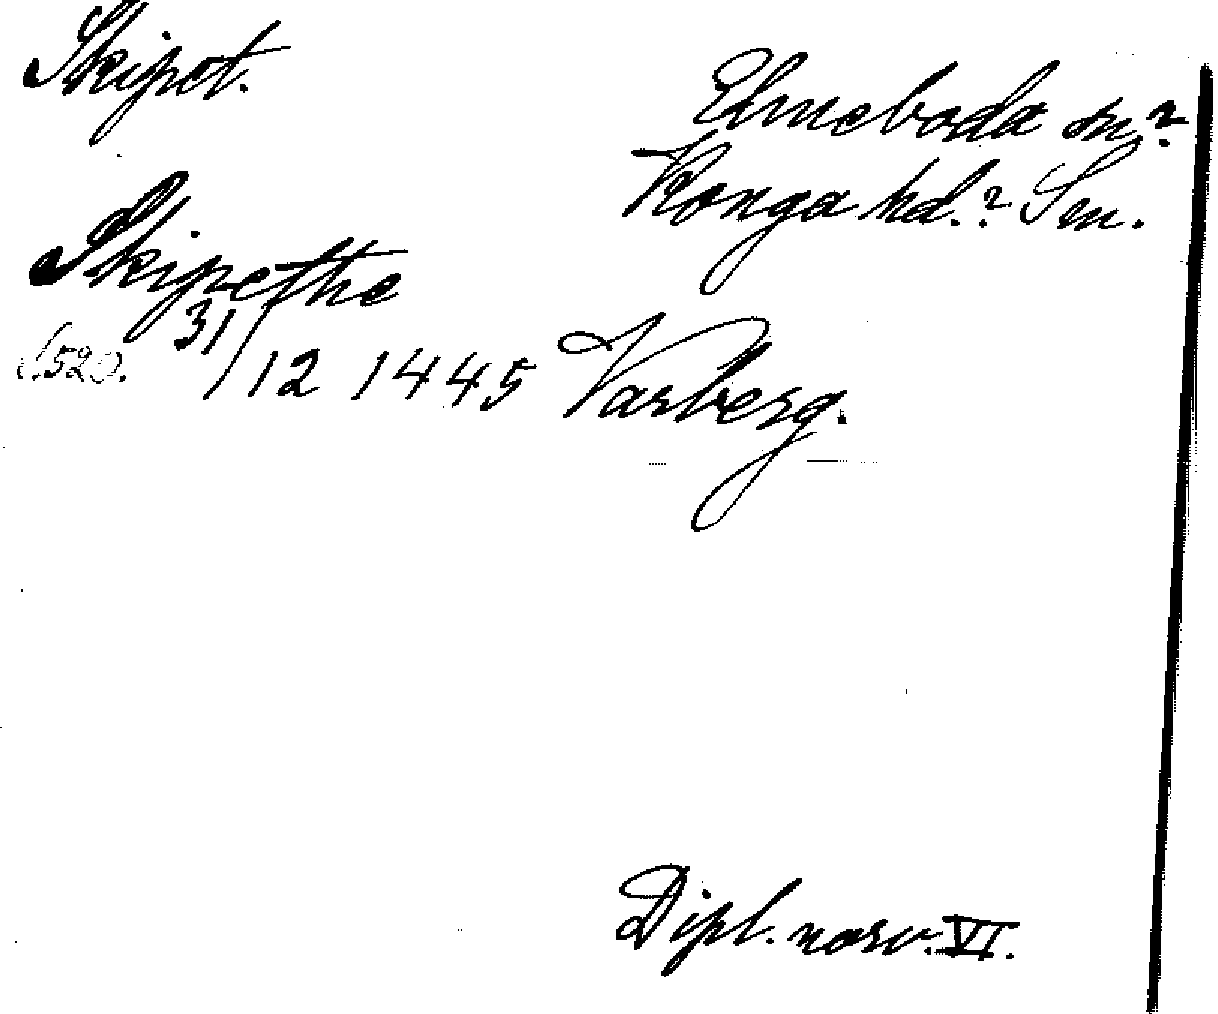 Skipot.
Elmeboda sn?
Konga hd.? Sm.
Skipethe
s. 520. 31/12 1445 Varberg.
Dipl. norv. VI.